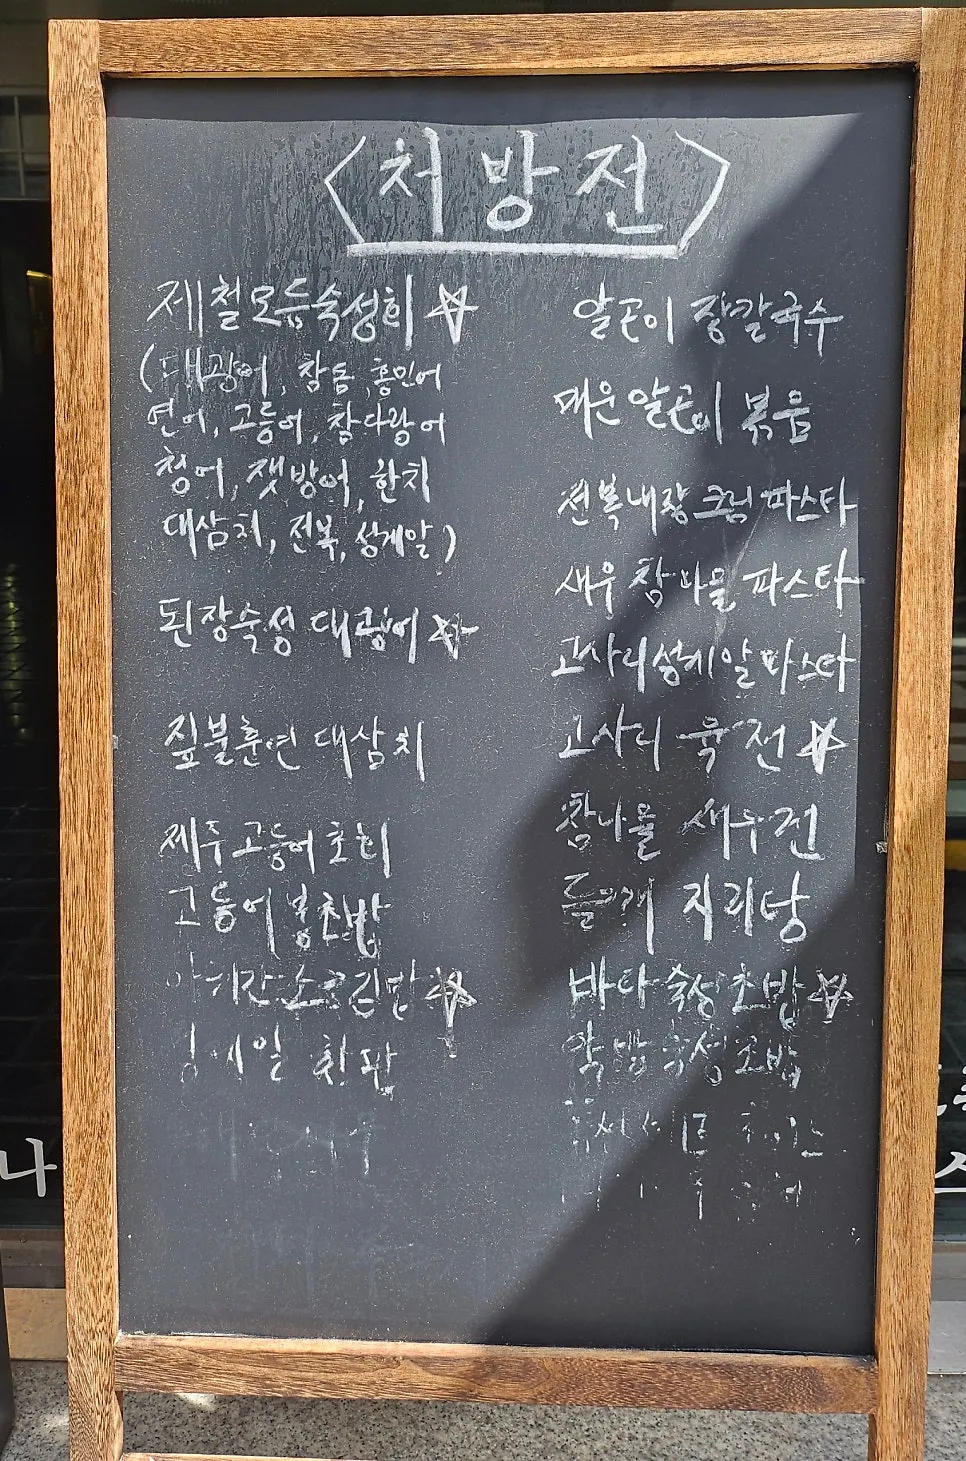 <처방전>
제철모듬숙성회 ☆
(대광어, 참돔, 홍민어
연어, 고등어, 참다랑어
청어, 잿방어, 한치
대삼치, 전복, 성게알)
된장숙성 대광어 ☆
짚불훈연 대삼치
제주고등어초회
고등어봉초밥
☆
알곤이 장칼국수
매운알곤이 볶음
전복내장크림파스타
새우 참나물 파스타
고사리성게알파스타
고사리 육전 ☆
참나물 새우전
들깨 지리탕
바다숙성초밥 ☆
숙성초밥
나